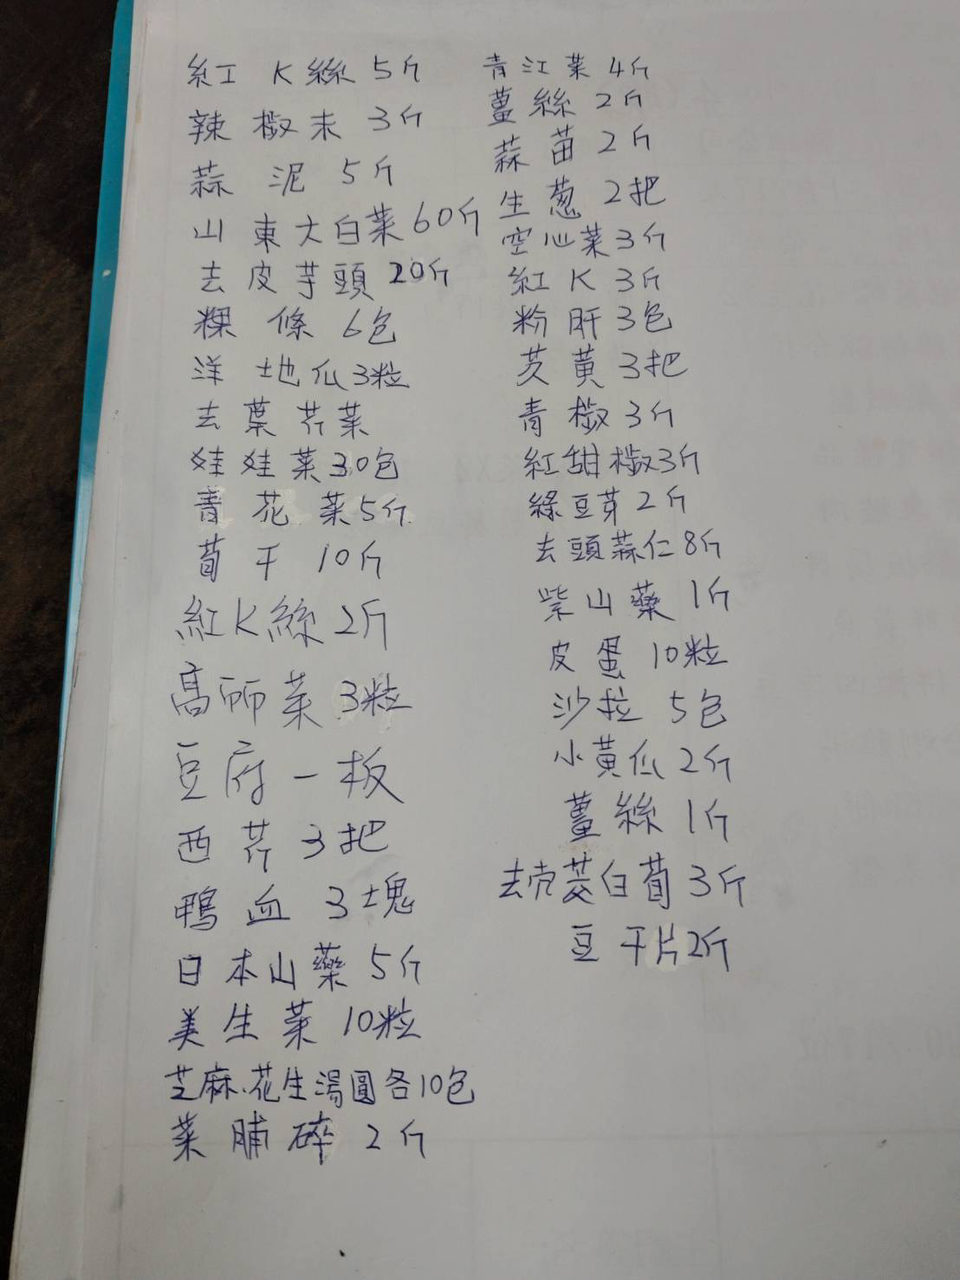 紅K絲 5斤
辣椒末 3斤
蒜泥 5斤
山東大白菜 60斤
去皮芋頭 20斤
粿條 6包
洋地瓜 3粒
去葉芹菜
娃娃菜 30包
青花菜 5斤
荀干 10斤
紅K絲 2斤
高麗菜 3粒
豆府一板
西芹 3把
鴨血 3塊
日本山藥 5斤
美生菜 10粒
芝麻.花生湯圓各10包
菜脯碎 2斤
青江菜 4斤
薑絲 2斤
蒜苗 2斤
生葱 2把
空心菜 3斤
紅K 3斤
粉肝 3包
芡黃 3把
青椒 3斤
紅甜椒 3斤
綠豆芽 2斤
去頭蒜仁 8斤
紫山藥 1斤
皮蛋 10粒
沙拉 5包
小黃瓜 2斤
薑絲 1斤
去壳茭白荀 3斤
豆干片 2斤